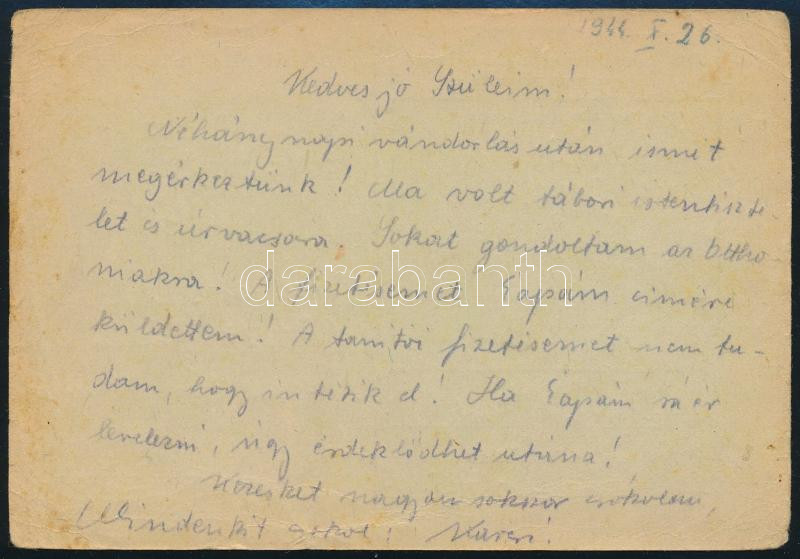 1944. X. 26.
Kedves jó Szüleim!
Néhány napi vándorlás után ismét
megérkeztünk! Ma volt tábori istentiszte
let és úrvacsora. Sokat gondoltam az Ottho
niakra! A fizetésemet Édapám címére
küldettem! A tanítói fizetésemet nem tu-
dom, hogy intézik el! Ha Édapám ráér
levelezni, úgy érdeklődhet utána!
nagyon sokszor csókolom,
Mindenkit csókol:
darabanth